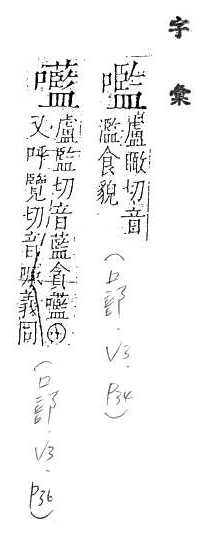 字彙
㘕盧瞰切音
濫食貌
(口部.V3.P34)
㘓盧監切音藍貪㘓㊀
又呼覽切音㘎義同
(口部.V3.P36)